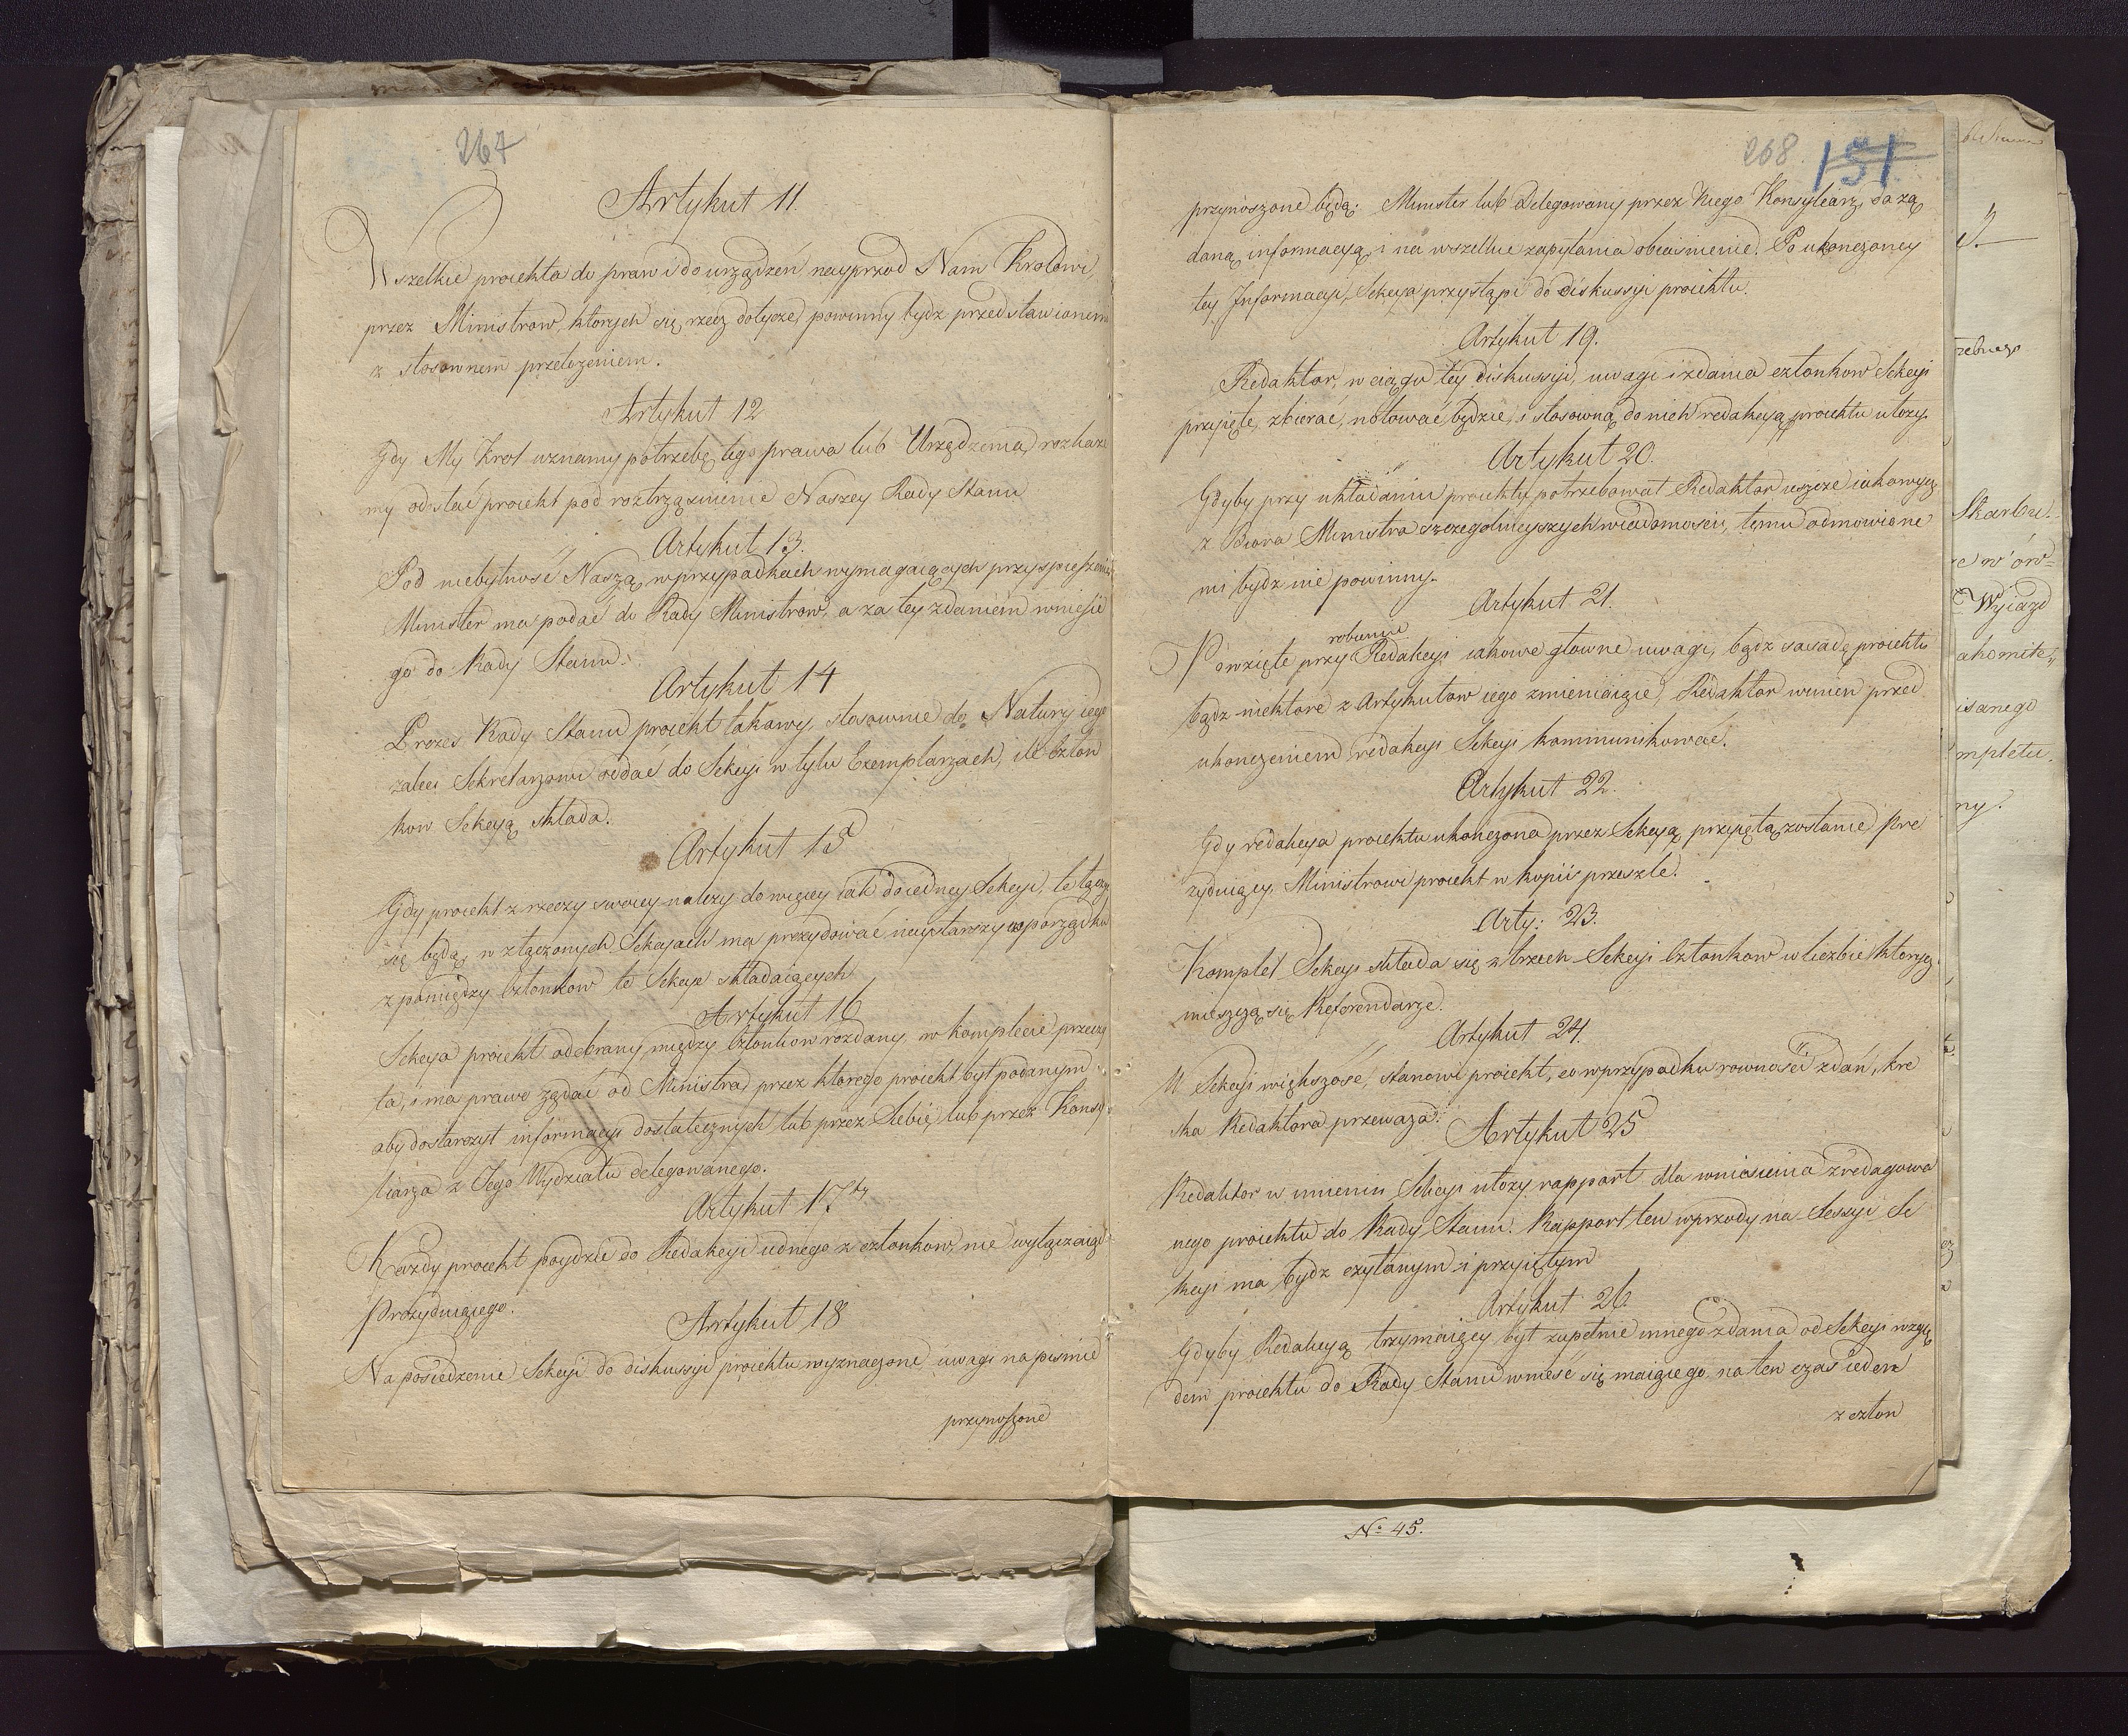 267
Artykuł 11.
Wszelkie proiekta do praw i do urządzeń nayprzod Nam Krolowi,
przez Ministrow, ktorych się rzecz dotycze, powinny bydz przedstawionemi
z stosownem przełożeniem.
Artykuł 12
Gdy My Krol uznamy potrzebę tego prawa lub Urządzenia, rozkaże
my odesłać proiekt pod roztrząśnienie Naszey Rady Stanu
Artykuł 13.
Pod niebytność Naszą, w przypadkach wymagaiących przyspieszenia
Minister ma podać do Rady Ministrow, a za tey zdaniem wniesie
go do Rady Stanu.
Artykuł 14
Prezes Rady Stanu proiekt takowy, stosownie do Natury iego
zaleci Sekretarzowi oddać do Sekcyi w tylu Exemplarzach, ile Człon
kow Sekcyą składa.
Artykuł 15
Gdy proiekt z rzeczy swoiey należy do więcey iak do iedney Sekcyi, te łączyć
się będą, w złączonych Sekcyach ma prezydować naystarszy w porządku
z pomiędzy Członkow te Sekcye składaiących
Artykuł 16
Sekcya proiekt odebrany między Członkow rozdany, w komplecie przeczy
ta, i ma prawo żądać od Ministra przez ktorego proiekt był podanym,
aby dostarczył informacyi dostatecznych lub przez Siebie lub przez Konsy
liarza z Jego Wydziału delegowanego.
Artykuł 17ty
Każdy proiekt poydzie do Redakcyi iednego z członkow, nie wyłączaiąc
Prezyduiącego.
Artykuł 18
Na posiedzenie Sekcyi do diskussyi proiektu wyznaczone uwagi na pismie
przynoszone
268. 151
przynoszone będą. Minister lub Delegowany przez Niego Konsyliarz, da żą
daną informacyą, i na wszelkie zapytania obiaśnienie. Po ukończoney
tey Informacyi, Sekcya przystąpi do diskussyi proiektu.
Artykuł 19.
Redaktor, w ciągu tey diskussyi, uwagi i zdania członkow Sekcyi
przyięte, zbierać, notować będzie, i stosowną do nich redakcyą proiektu ułoży.
Artykuł 20.
Gdyby przy układaniu proiektu potrzebował Redaktor ieszcze iakowych
z Biora Ministra szczegolnieyszych wiadomości, temu odmowione
mi bydz nie powinny.
Artykuł 21.
robieniu
Powzięte przy Redakcyi iakowe głowne uwagi, bądz zasadę proiektu
bądz niektore z Artykułow iego zmieniaiące, Redaktor winien przed
ukończeniem redakcyi Sekcyi kommunikować.
Artykuł 22.
Gdy redakcya proiektu ukończona przez Sekcyą przyiętą zostanie, Pre
zyduiący, Ministrowi proiekt w kopii prześle.
Arty: 23.
Komplet Sekcyi składa się z trzech Sekcyi Członkow w liczbie ktorych
mieszczą się Referendarze.
Artykuł 24.
W Sekcyi większość, stanowi proiekt, co w przypadku rowności zdań, kre
ska Redaktora przeważa.
Artykuł 25
Redaktor w imieniu Sekcyi ułoży rapport dla wniesienia zredagowa
nego proiektu do Rady Stanu. Rapport ten wprzody na Sessyi Se
kcyi ma bydz czytanym i przyiętym
Artykuł 26.
Gdyby Redakcyą trzymaiący był zupełnie innego zdania od Sekcyi wzglę
dem proiektu do Rady Stanu wnieść się maiącego, na ten czas ieden
z człon
No 45.
Skarbu
Wyiazd
isanego
mpletu.
ny.